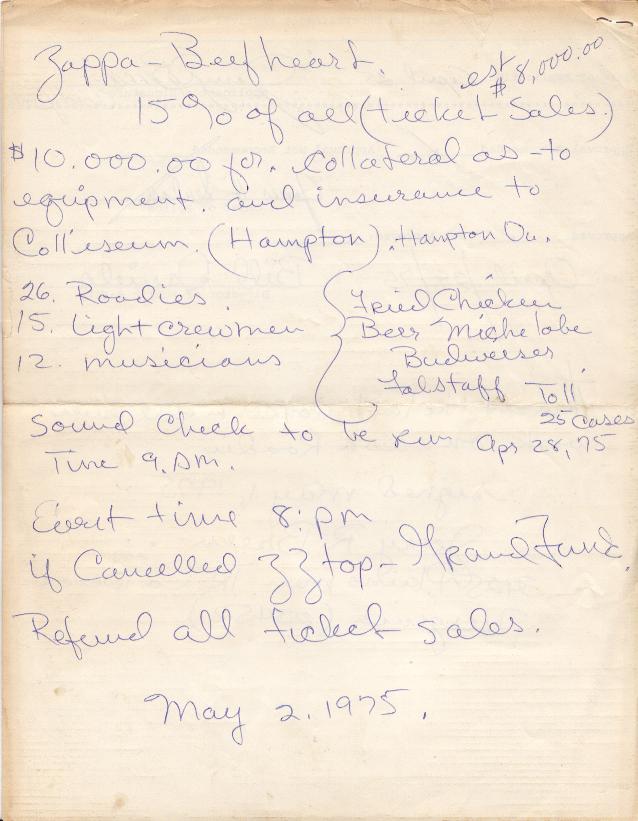 Zappa - Beefheart.
est $8,000.00
15% of all (ticket Sales.)
$10.000.00 for. Collateral as - to
equipment. and insurance to
Colliseum. (Hampton). Hampton Va.
26. Roadies.
15. light crewmen
12. musicians
Fried Chicken
Beer Michelobe
Budweiser
Falstaff Toll
25 Cases
Sound Check to be run Apr 28, 75
Time 9. A.M.
Event time 8: pm
if Cancelled ZZ top - Grand Funk.
Refund all ticket sales.
May 2. 1975.